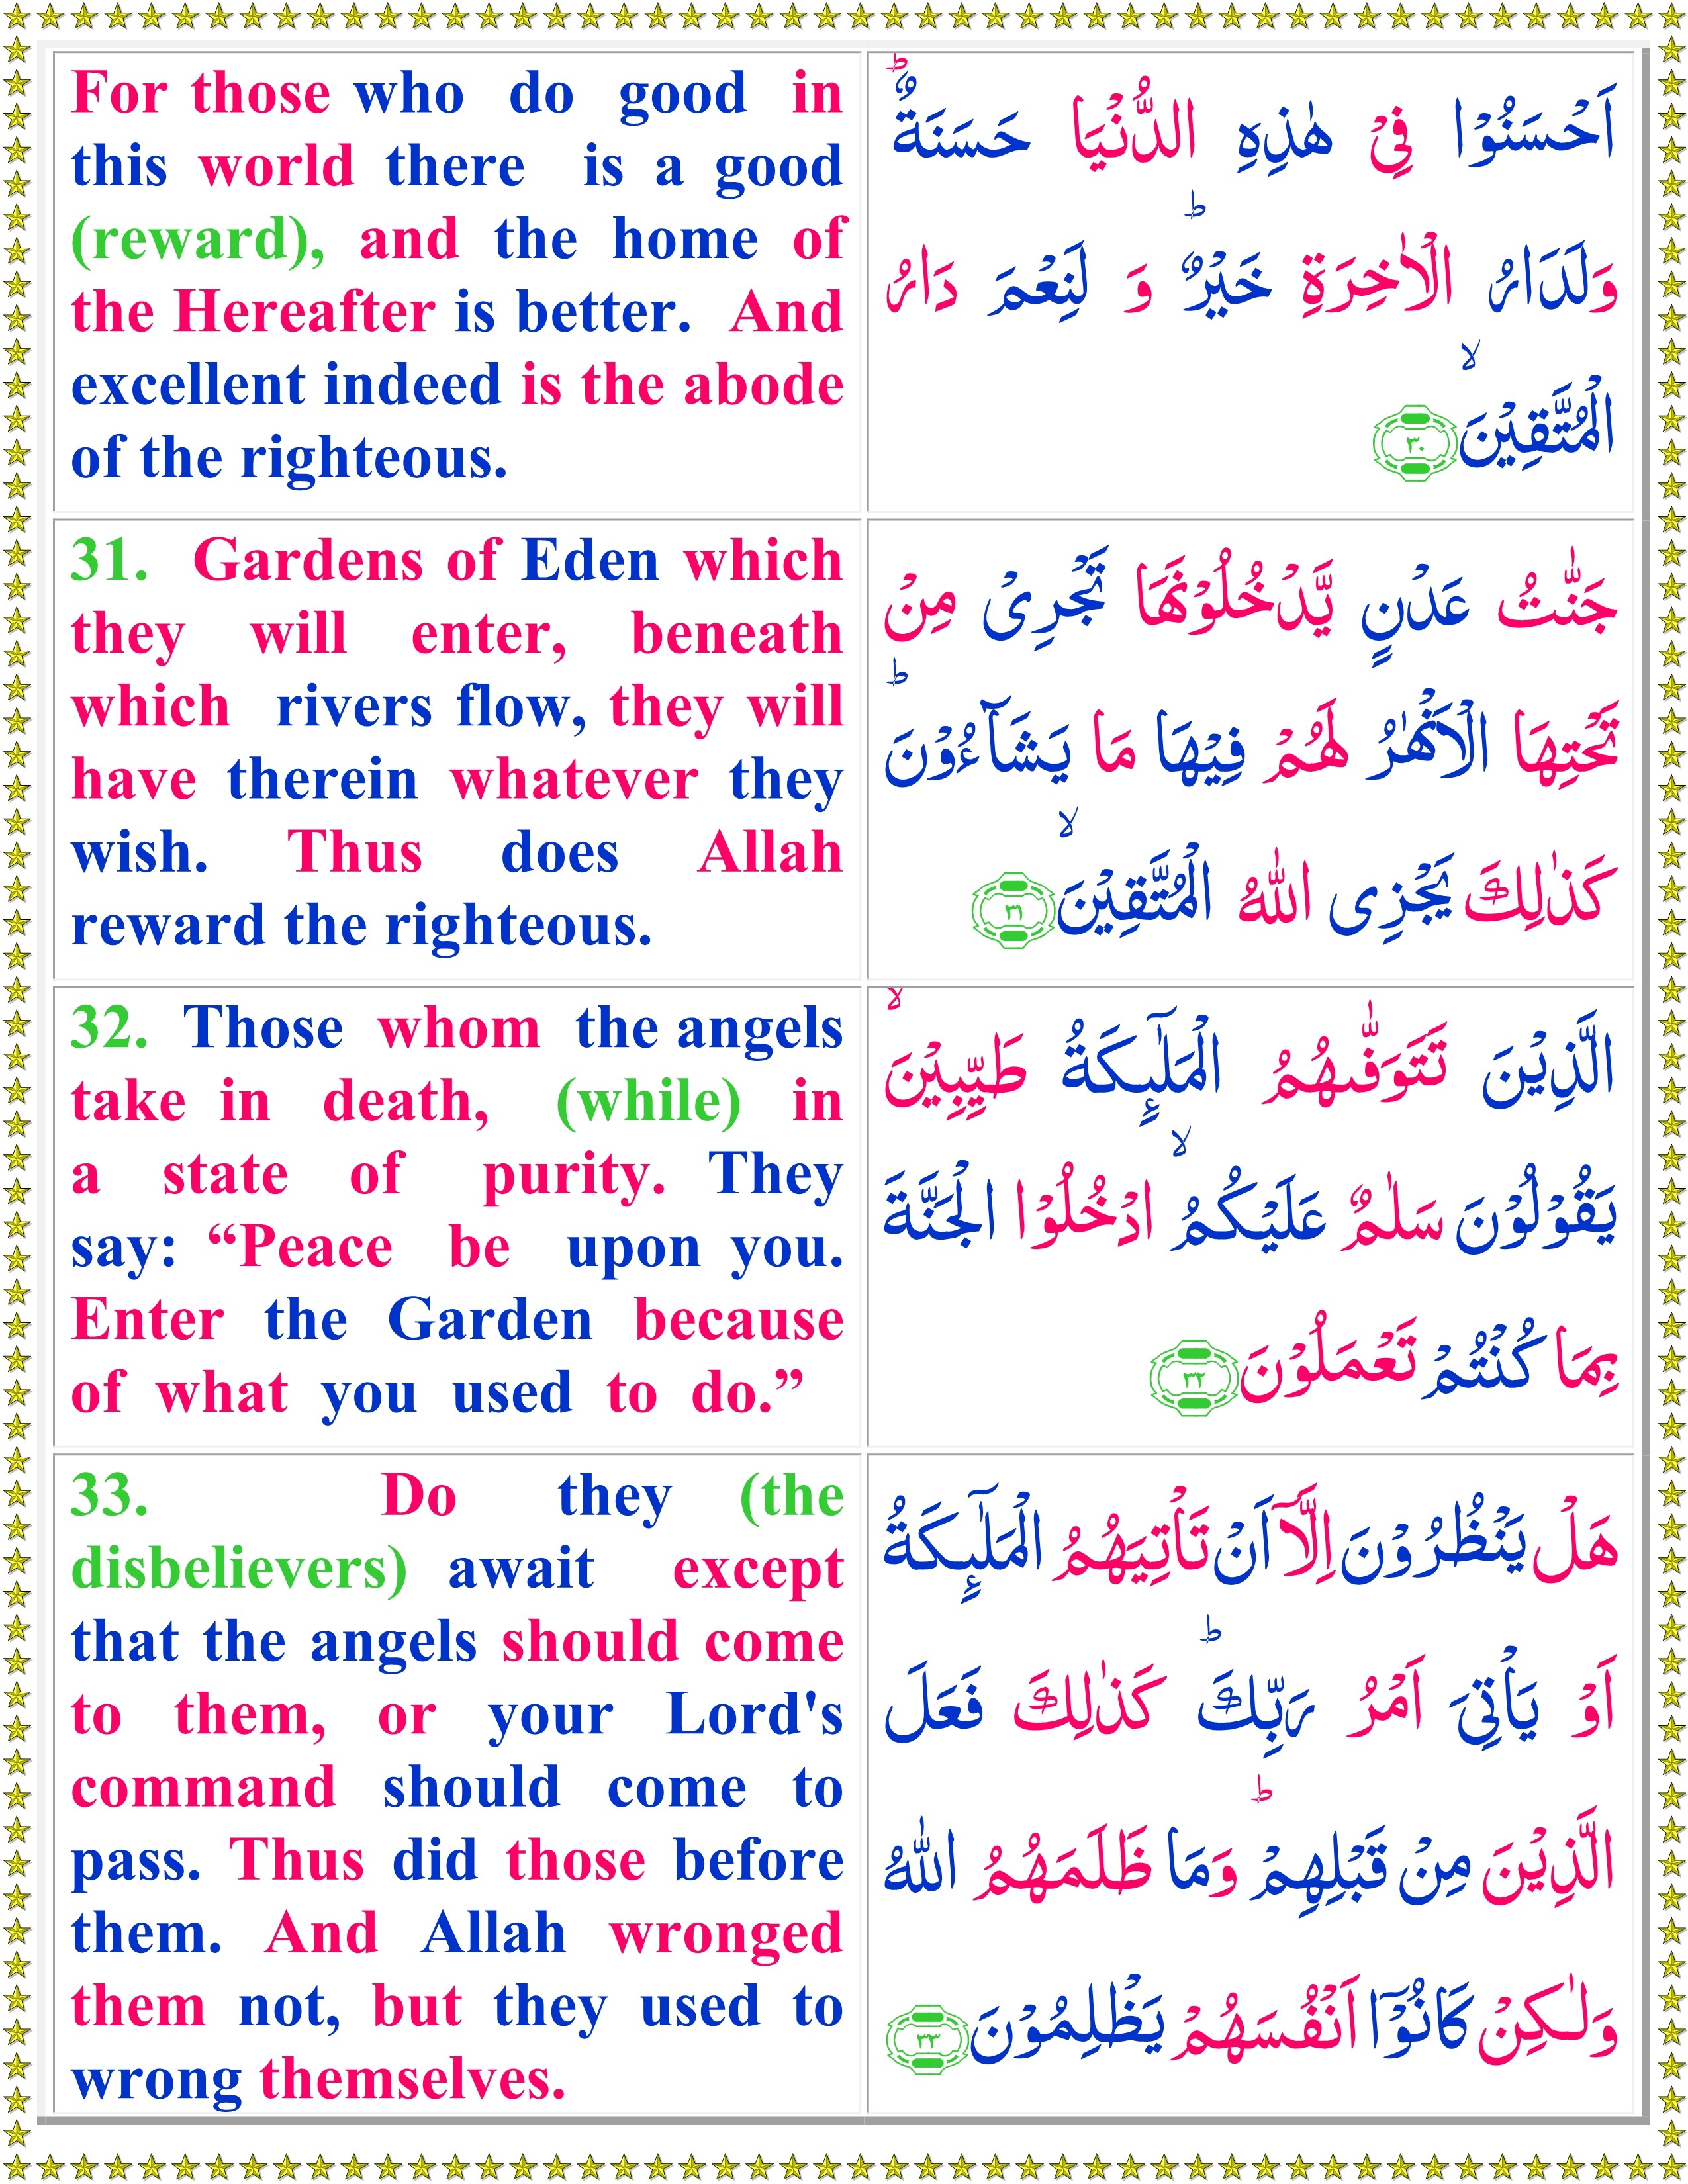 For those who do good in
this world there is a good
(reward), and the home of
the Hereafter is better. And
excellent indeed is the abode
of the righteous.
اَحْسَنُوْا فِیْ هٰذِهِ الدُّنْیَا حَسَنَةٌ ؕ
وَلَدَارُ الْاٰخِرَةِ خَیْرٌ ؕ وَ لَنِعْمَ دَارُ
الْمُتَّقِیْنَ ۙ ﴿۳۰﴾
31. Gardens of Eden which
they will enter, beneath
which rivers flow, they will
have therein whatever they
wish. Thus does Allah
reward the righteous.
جَنّٰتُ عَدْنٍ یَّدْخُلُوْنَهَا تَجْرِیْ مِنْ
تَحْتِهَا الْاَنْهٰرُ لَهُمْ فِیْهَا مَا یَشَآءُوْنَ ؕ
كَذٰلِكَ یَجْزِی اللّٰهُ الْمُتَّقِیْنَ ۙ ﴿۳۱﴾
32. Those whom the angels
take in death, (while) in
a state of purity. They
say: “Peace be upon you.
Enter the Garden because
of what you used to do.”
الَّذِیْنَ تَتَوَفّٰىهُمُ الْمَلٰٓىِٕكَةُ طَیِّبِیْنَ ۙ
یَقُوْلُوْنَ سَلٰمٌ عَلَیْكُمُ ۙ ادْخُلُوا الْجَنَّةَ
بِمَا كُنْتُمْ تَعْمَلُوْنَ ﴿۳۲﴾
33. Do they (the
disbelievers) await except
that the angels should come
to them, or your Lord's
command should come to
pass. Thus did those before
them. And Allah wronged
them not, but they used to
wrong themselves.
هَلْ یَنْظُرُوْنَ اِلَّاۤ اَنْ تَاْتِیَهُمُ الْمَلٰٓىِٕكَةُ
اَوْ یَاْتِیَ اَمْرُ رَبِّكَ ؕ كَذٰلِكَ فَعَلَ
الَّذِیْنَ مِنْ قَبْلِهِمْ ؕ وَمَا ظَلَمَهُمُ اللّٰهُ
وَلٰكِنْ كَانُوْۤا اَنْفُسَهُمْ یَظْلِمُوْنَ ﴿۳۳﴾